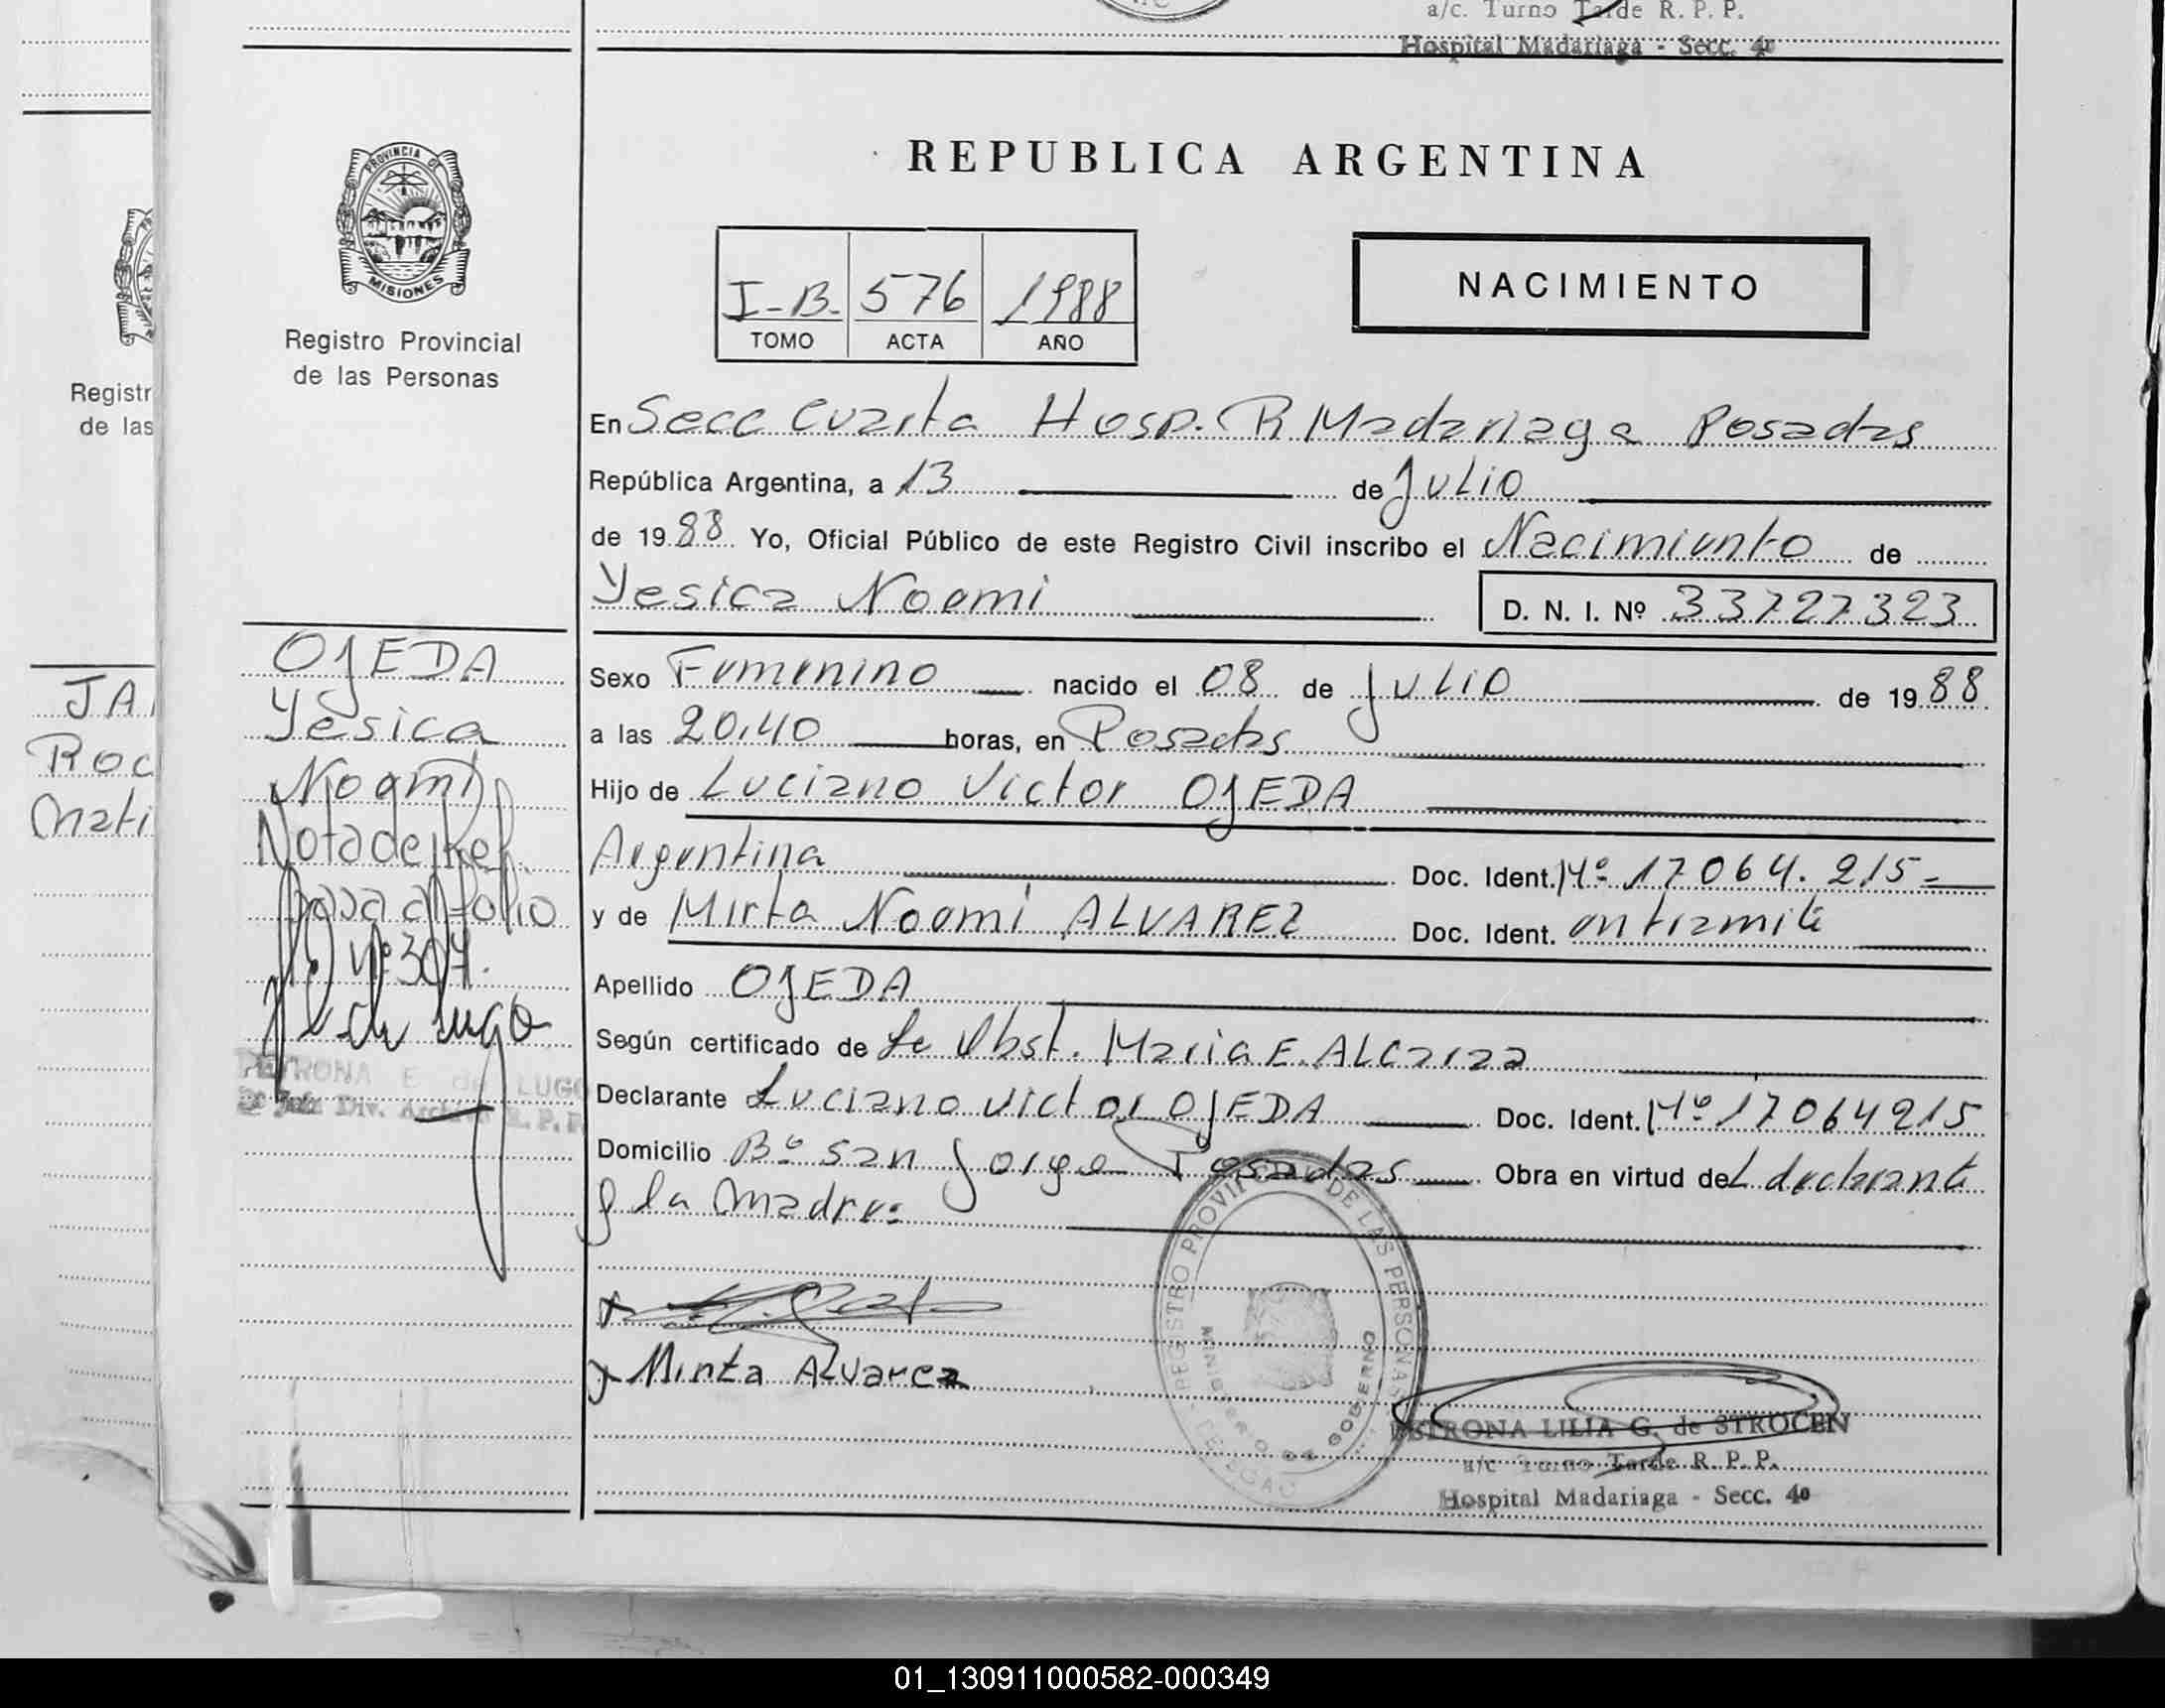 a/c. Turno Tarde R. P. P.
Hospital Madariaga - Secc. 4º
PROVINCIA DE
MISIONES
Registro Provincial
de las Personas
Registr
de las
REPUBLICA ARGENTINA
I-B- 576 1988
TOMO ACTA AÑO
NACIMIENTO
En Secc Cuarta Hosp. R Madariaga Posadas
República Argentina, a 13 de Julio
de 1988 Yo, Oficial Público de este Registro Civil inscribo el Nacimiento de
Yesica Noemi D. N. I. Nº 33727323
OJEDA
Yesica
Noemi
Nota de Ref.
pasa al folio
Nº 304.
PETRONA E de LUGO
Div. Archivo R. P. P.
JA
Roc
Mati
Sexo Femenino nacido el 08 de Julio de 1988
a las 20,40 horas, en Posadas
Hijo de Luciano Victor OJEDA
Argentina Doc. Ident. Mº 17064.215-
y de Mirta Noemi ALVAREZ Doc. Ident. en tramite
Apellido OJEDA
Según certificado de La Obst. Maria E. ALcaraz
Declarante Luciano Victor OJEDA Doc. Ident. Mº 17064215
Domicilio Bº San Jorge Posadas Obra en virtud deL declarante
y la Madre=
x
x Mirta Alvarez
REGISTRO PROVINCIAL DE LAS PERSONAS
MINISTERIO DE GOBIERNO
PETRONA LILIA G. de STROCEN
a/c Turno Tarde R. P. P.
Hospital Madariaga - Secc. 4º
01_130911000582-000349